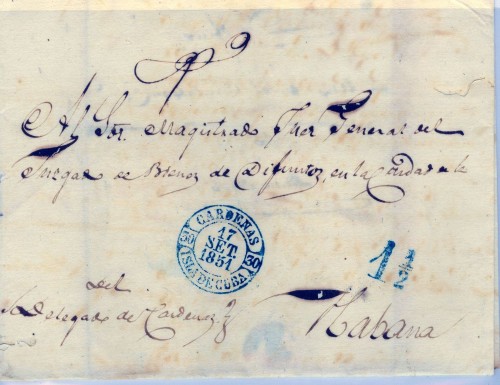 Al Sor. Magistrado Juez General del
Juzgado de Bienes de Difuntos, en la Ciudad de la
CARDENAS
30 17 30
SET.
1851
ISLA DE CUBA
1 1/2
del
Delegado de Cardenas
Habana